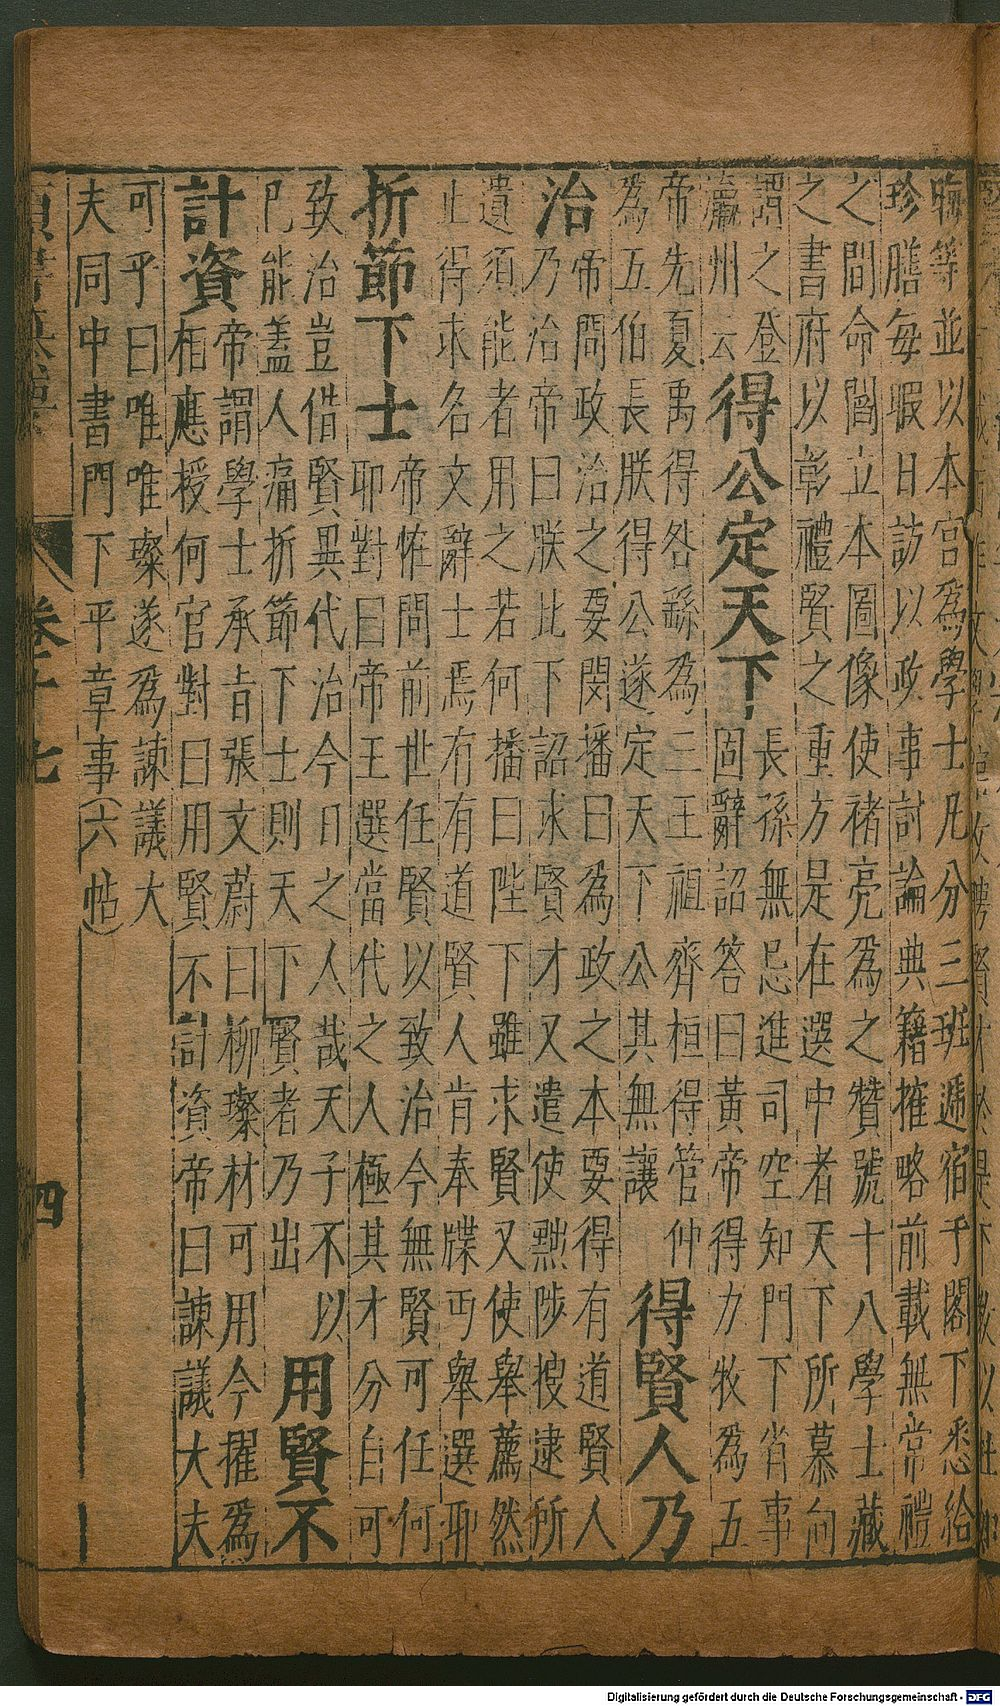 晦等並以本宮爲學士凡分三班遞宿于閣下悉給
珍膳每暇日訪以政事討論典籍摧略前載無常禮
之間命閻立本圖像使褚亮爲之贊號十八學士藏
之書府以彰禮賢之重方是在選中者天下所慕向
謂之登
瀛州云
得公定天下
長孫無忌進司空知門下省事
固辭詔答曰黃帝得力牧爲五
帝先夏禹得咎繇爲三王祖齊桓得管仲
為五伯長朕得公遂定天下公其無讓
得賢人乃
治
帝問政治之要閔播曰為政之本要得有道賢人
乃治帝曰朕比下詔求賢才又遣使黜陟搜逮所
遺須能者用之若何播曰陛下雖求賢又使舉薦然
止得求名文辭士焉有有道賢人肯奉牒丐舉選耶
折節下士
帝惟問前世任賢以致治今無賢可任何
耶對曰帝王選當代之人極其才分自可
致治豈借賢異代治今日之人哉天子不以
巳能蓋人痛折節下士則天下賢者乃出
用賢不
計資
帝謂學士承旨張文蔚曰柳璨材可用今擢爲
相應授何官對曰用賢不計資帝曰諫議大夫
可乎曰唯唯璨遂爲諫議大
夫同中書門下平章事(六帖)
四
Digitalisierung gefördert durch die Deutsche Forschungsgemeinschaft - DFG